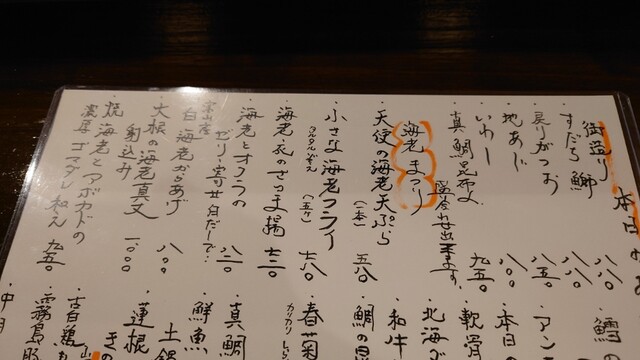 本日のお
御造り
・すだち鰤 八八〇
・戻りがつお 八五〇
・地あじ 八〇〇
・いわし
・真鯛昆布〆 九五〇
盛合わせ出来ます
海老まつり
・天使の海老天ぷら (二本) 五八〇
・小さな海老フライ (五ケ) 七八〇
タルタル添え
・海老・衣のさつま揚 七二〇
・海老とオクラの
ゼリー寄せ
・富山産
白海老かきあげ 八〇〇
・大根の海老真丈
射込み 一〇〇〇
・焼海老とアボカドの
濃厚ゴマダレ和え 九五〇
・鱈の
・アン
・本日
・軟骨
・北海
・和牛
・鯛の
・春菊
カリカリ
・真鯛
・鮮魚
土鍋
・蓮根
きの
・古白鶏
・霧島豚